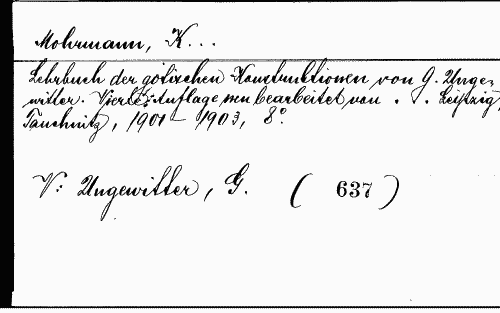 Mohrmann, K...
Lehrbuch der gotischen Konstruktionen von G. Unge-
witter. Vierte Auflage neu bearbeitet von . . . Leipzig,
Tauchnitz, 1901 – 1903, 8°.
V: Ungewitter, G. ( 637 )